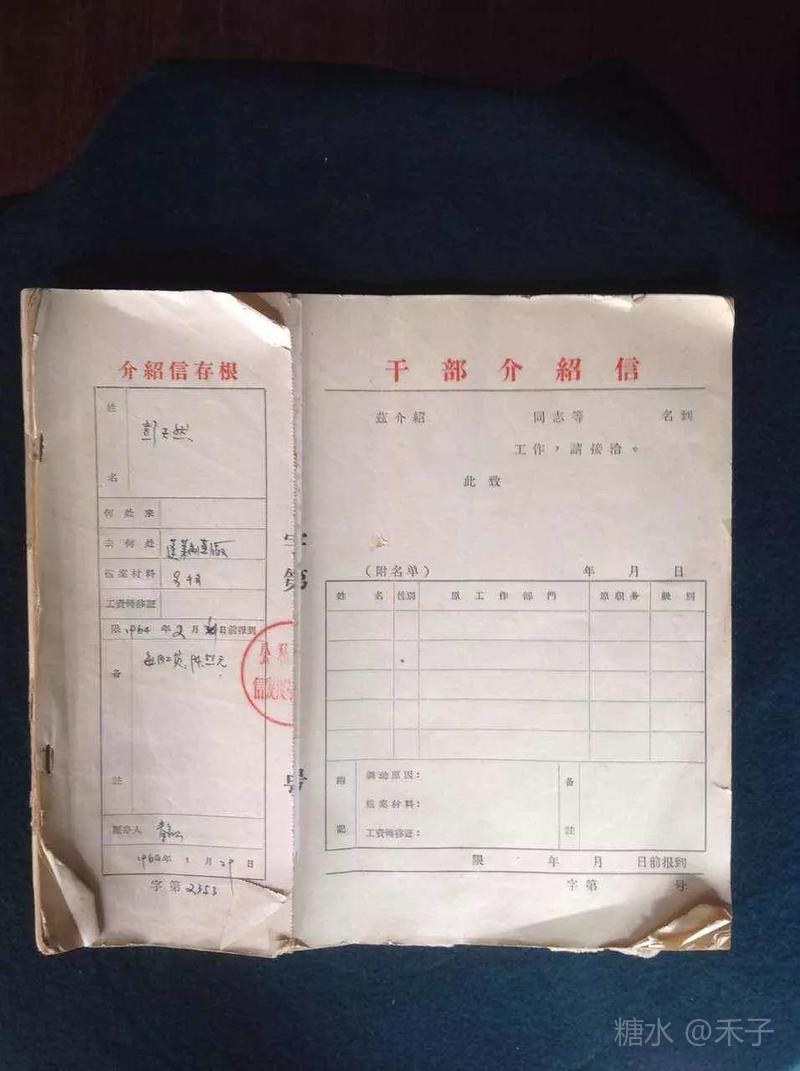 介紹信存根
姓名
彭天然
何处來
去何处
檔案材料
工資轉移証
限1964年2月 日前报到
备註
經办人
1964年1月29日
字第2353
字第 号
干部介紹信
茲介紹 同志等 名到
工作，請接洽。
此致
(附名单) 年 月 日
姓名 性別 原工作部門 原职务 級別
附記
調动原因：
檔案材料：
工資轉移証：
备註
限 年 月 日前报到
字第 号
糖水 @禾子